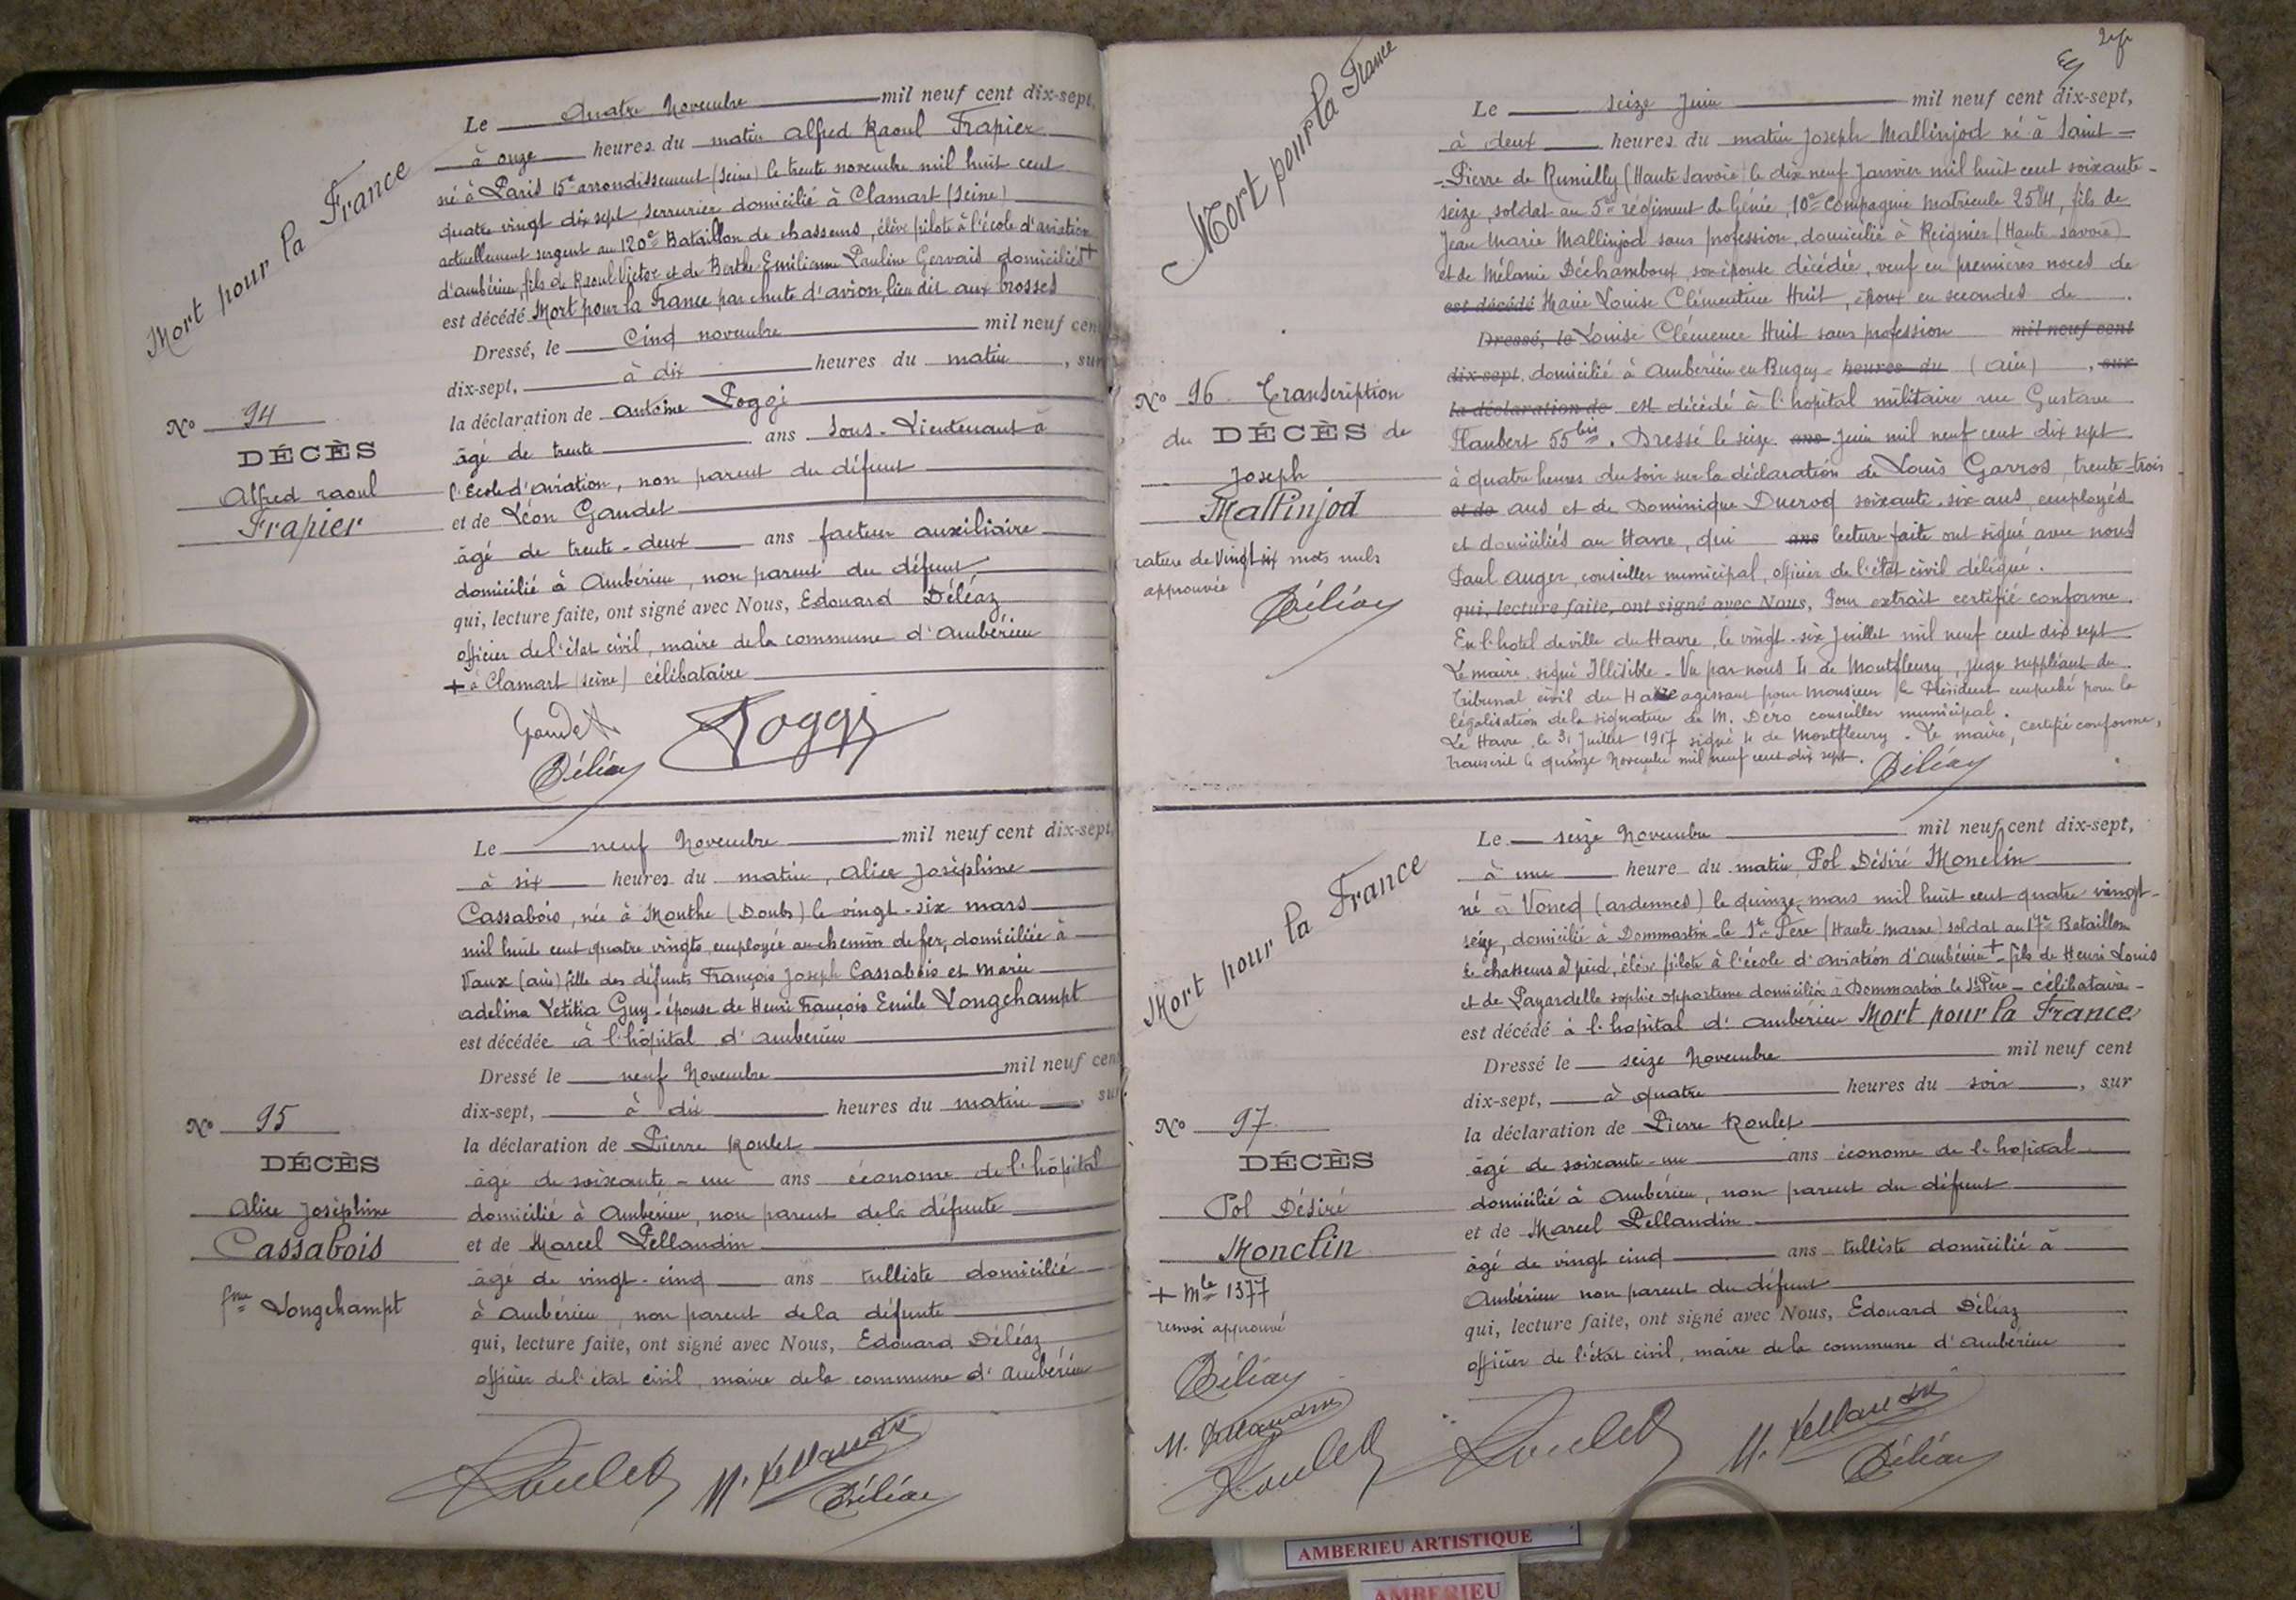 Mort pour la France
Le quatre Novembre mil neuf cent dix-sept,
à onze heures du matin Alfred Raoul Frapier
né à Paris 15e arrondissement (Seine) le trente novembre mil huit cent
quatre vingt dix sept, serrurier domicilié à Clamart (Seine)
actuellement sergent au 120e Bataillon de chasseurs, élève pilote à l'école d'aviation
d'ambérieu, fils de Raoul Victor et de Berthe Emilienne Pauline Gervais domiciliés +
est décédé Mort pour la France, par chute d'avion, lieu dit aux brosses
Dressé, le Cinq novembre mil neuf cent
dix-sept, à dix heures du matin, sur
la déclaration de Antoine Poggi
âgé de trente ans Sous-Lieutenant à
l'Ecole d'aviation, non parent du défunt
et de Léon Gaudet
âgé de trente-deux ans facteur auxiliaire
domicilié à Ambérieu, non parent du défunt,
qui, lecture faite, ont signé avec Nous, Edouard Déléaz
officier de l'état civil, maire de la commune d'Ambérieu
+ à Clamart (seine) célibataire
No 94
DÉCÈS
Alfred raoul
Frapier
Gaudet
Poggi
Déléaz
Le neuf Novembre mil neuf cent dix-sept,
à six heures du matin, Alice Joséphine
Cassabois, née à Mouthe (Doubs) le vingt-six mars
mil huit cent quatre vingts, employée au chemin de fer, domiciliée à
Vaux (ain) fille des défunts François Joseph Cassabois et Marie
adelina Letitia Guy - épouse de Henri François Emile Longchampt
est décédée à l'hôpital d'ambérieu
Dressé le neuf Novembre mil neuf cent
dix-sept, à dix heures du matin, sur
la déclaration de Pierre Roulet
âgé de soixante-un ans économe de l'hôpital
domicilié à Ambérieu, non parent de la défunte
et de Marcel Pellaudin
âgé de vingt-cinq ans tulliste domicilié
à Ambérieu, non parent de la défunte
qui, lecture faite, ont signé avec Nous, Edouard Déléaz
officier de l'état civil, maire de la commune d'Ambérieu
No 95
DÉCÈS
Alice Joséphine
Cassabois
fme Longchampt
Roulet
M. Pellaudin
Déléaz
Mort pour la France
Le seize Juin mil neuf cent dix-sept,
à deux heures du matin Joseph Mallinjod né à Saint-
-Pierre de Rumilly (Haute Savoie) le dix neuf Janvier mil huit cent soixante-
seize, soldat au 5e régiment de Génie, 10e Compagnie matricule 2584, fils de
Jean Marie Mallinjod sans profession, domicilié à Reignier (Haute savoie)
et de Mélanie Déchamboux, son épouse décédée, veuf en premières noces de
est décédé Marie Louise Clémentine Huit, époux en secondes de
Dressé, le Louise Clémence Huit sans profession mil neuf cent
dix-sept, domicilié à Ambérieu en Bugey - heures du (ain), sur
la déclaration de est décédé à l'hopital militaire rue Gustave
Flaubert 55bis. Dressé le seize ans Juin mil neuf cent dix sept
à quatre heures du soir sur la déclaration de Louis Garros, trente-trois
et de ans et de Dominique Ducrocq soixante-six ans, employés
et domiciliés au Havre, qui ans lecture faite ont signé avec nous
Paul Auger, conseiller municipal, officier de l'état civil délégué.
qui, lecture faite, ont signé avec Nous, Pour extrait certifié conforme
En l'hotel de ville du Havre, le vingt-six Juillet mil neuf cent dix sept
Le maire, signé Illisible - Vu par nous H de Montfleury, juge suppléant du
Tribunal civil du Havre agissant pour monsieur le Président empêché pour la
légalisation de la signature de M. Déro conseiller municipal.
Le Havre, le 31 Juillet 1917 signé H de Montfleury. Le maire, certifié conforme,
Transcrit le quinze Novembre mil neuf cent dix sept.
Déléaz
No 96 Transcription
du DÉCÈS de
Joseph
Mallinjod
rature de Vingt six mots nuls
approuvée
Déléaz
Mort pour la France
Le seize Novembre mil neuf cent dix-sept,
à une heure du matin, Pol Désiré Monclin
né à Voncq (ardennes) le quinze mars mil huit cent quatre vingt-
seize, domicilié à Dommartin-le St Père (Haute Marne) soldat au 17e Bataillon
de chasseurs à pied, élève pilote à l'école d'aviation d'ambérieu + fils de Henri Louis
et de Payardelle sophie opportune domiciliés à Dommartin le St Père - célibataire -
est décédé à l'hopital d'ambérieu Mort pour la France
Dressé le seize Novembre mil neuf cent
dix-sept, à quatre heures du soir, sur
la déclaration de Pierre Roulet
âgé de soixante-un ans économe de l'hopital
domicilié à Ambérieu, non parent du défunt
et de Marcel Pellaudin
âgé de vingt cinq ans tulliste domicilié à
Ambérieu non parent du défunt
qui, lecture faite, ont signé avec Nous, Edouard Déléaz
officier de l'état civil, maire de la commune d'ambérieu
No 97
DÉCÈS
Pol Désiré
Monclin
+ Mle 1377
renvoi approuvé
Déléaz
M. Pellaudin
Roulet
Roulet
M. Pellaudin
Déléaz
AMBERIEU ARTISTIQUE
AMBERIEU